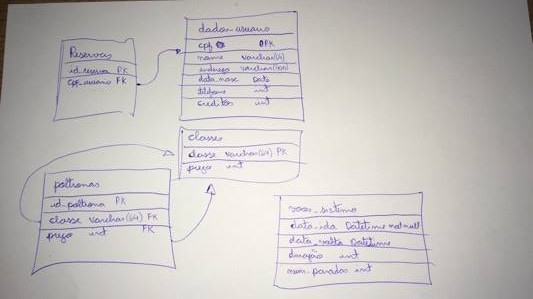 Reservas
id_reserva PK
cpf_usuario FK
dados_usuario
cpf PK
nome varchar(64)
endereço varchar(100)
data_nasc Date
telefone int
creditos int
classes
classe varchar(64) PK
preço int
poltronas
id_poltrona PK
classe varchar(64) FK
preço int FK
voos_sistema
data_ida Datetime not null
data_volta Datetime
duração int
num_paradas int